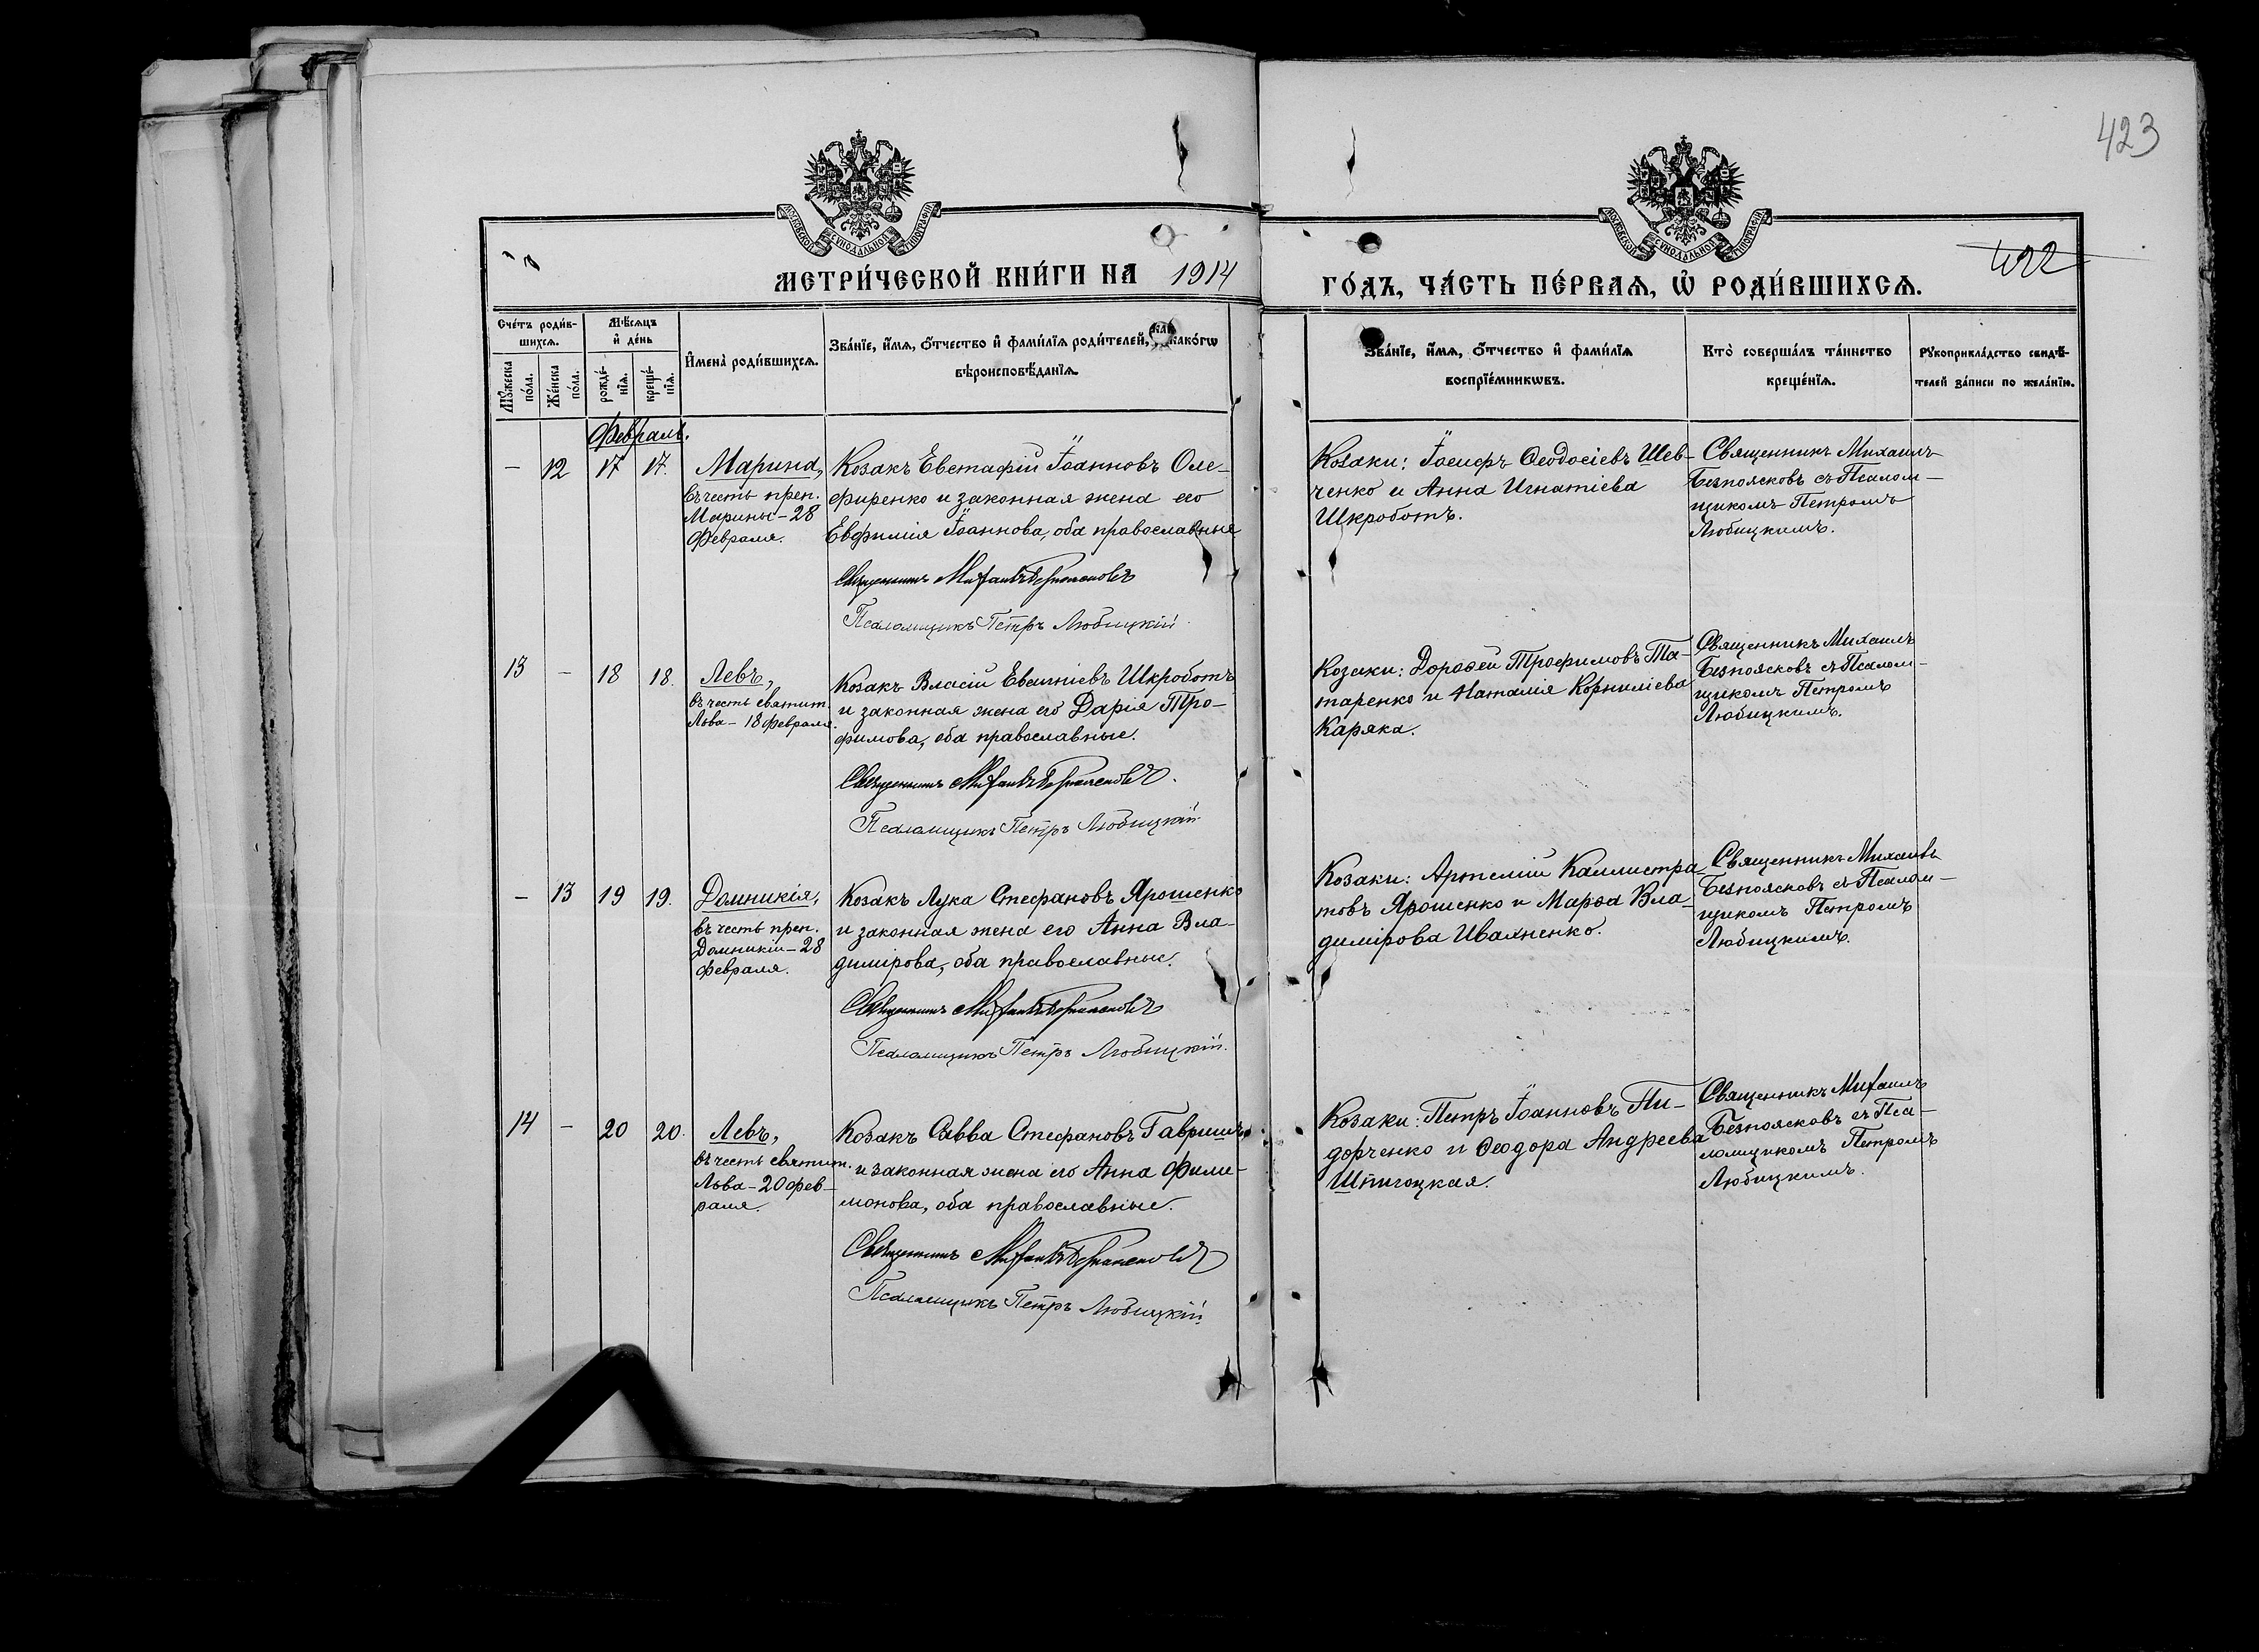 423
422
МОСКОВСКОЙ СѴНОДАЛЬНОЙ ТИПОГРАФІИ
МОСКОВСКОЙ СѴНОДАЛЬНОЙ ТИПОГРАФІИ
МЕТРИ́ЧЕСКОЙ КНИ́ГИ НА 1914
ГО́ДЪ, ЧА́СТЬ ПЕ́РВАѦ, Ѡ҆ РОДИ́ВШИХСѦ.
Сче́тъ роди́в-
шихсѧ.
Мѹ́жеска по́ла.
Же́нска по́ла.
Мѣ́сѧцъ
и҆ де́нь
рожде́-
нїѧ.
креще́-
нїѧ.
И҆мена̀ роди́вшихсѧ.
Зва́нїе, и҆́мѧ, ѻ҆́тчество и҆ фами́лїѧ роди́телей, и҆ како́гѡ
вѣроисповѣ́данїѧ.
Зва́нїе, и҆́мѧ, ѻ҆́тчество и҆ фами́лїѧ
воспрїе́мникѡвъ.
Кто̀ соверша́лъ та́инство
креще́нїѧ.
Рѹкоприкла́дство свидѣ́-
телей за́писи по жела́нїю.
Февраль.
— 12 17 17.
Марина,
въ честь преп.
Марины – 28
Февраля.
Козакъ Евстафій Іоанновъ Оле-
фиренко и законная жена его
Евфимія Іоаннова, оба православные
Священникъ Михаилъ Безпоясковъ
Псаломщикъ Петръ Любицкій
Козаки: Іосифъ Ѳеодосіевъ Шев-
ченко и Анна Игнатіева
Шкроботъ.
Священникъ Михаилъ
Безпоясковъ съ Псалом-
щикомъ Петромъ
Любицкимъ.
13 — 18 18.
Левъ,
въ честь святит.
Льва – 18 февраля.
Козакъ Власій Евстіевъ Шкроботъ
и законная жена его Дарія Тро-
фимова, оба православные.
Священникъ Михаилъ Безпоясковъ.
Псаломщикъ Петръ Любицкій
Козаки: Дороѳей Трофимовъ Та-
таренко и Наталія Корниліева
Каряка.
Священникъ Михаилъ
Безпоясковъ съ Псалом-
щикомъ Петромъ
Любицкимъ.
— 13 19 19.
Домникія,
въ честь преп.
Домникіи – 28
февраля.
Козакъ Лука Стефановъ Ярошенко
и законная жена его Анна Вла-
димірова, оба православные.
Священникъ Михаилъ Безпоясковъ
Псаломщикъ Петръ Любицкій.
Козаки: Артемій Каллистра-
товъ Ярошенко и Марѳа Вла-
димірова Ивахненко.
Священникъ Михаилъ
Безпоясковъ съ Псалом-
щикомъ Петромъ
Любицкимъ.
14 — 20 20.
Левъ,
въ честь святит.
Льва – 20 фев-
раля.
Козакъ Савва Стефановъ Гавришъ
и законная жена его Анна Фили-
монова, оба православные.
Священникъ Михаилъ Безпоясковъ
Псаломщикъ Петръ Любицкій
Козаки: Петръ Іоанновъ Пи-
дорченко и Ѳеодора Андреева
Шпигоцкая.
Священникъ Михаилъ
Безпоясковъ съ Пса-
ломщикомъ Петромъ
Любицкимъ.